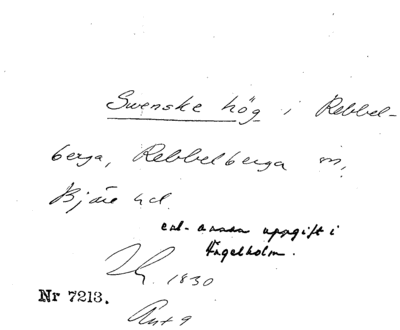 Swenske hög i Rebbel-
berga, Rebbelberga sn,
Bjäre hd.
enl. annan uppgift i
Ängelholm.
1830
Nr 7213.
Ant 9